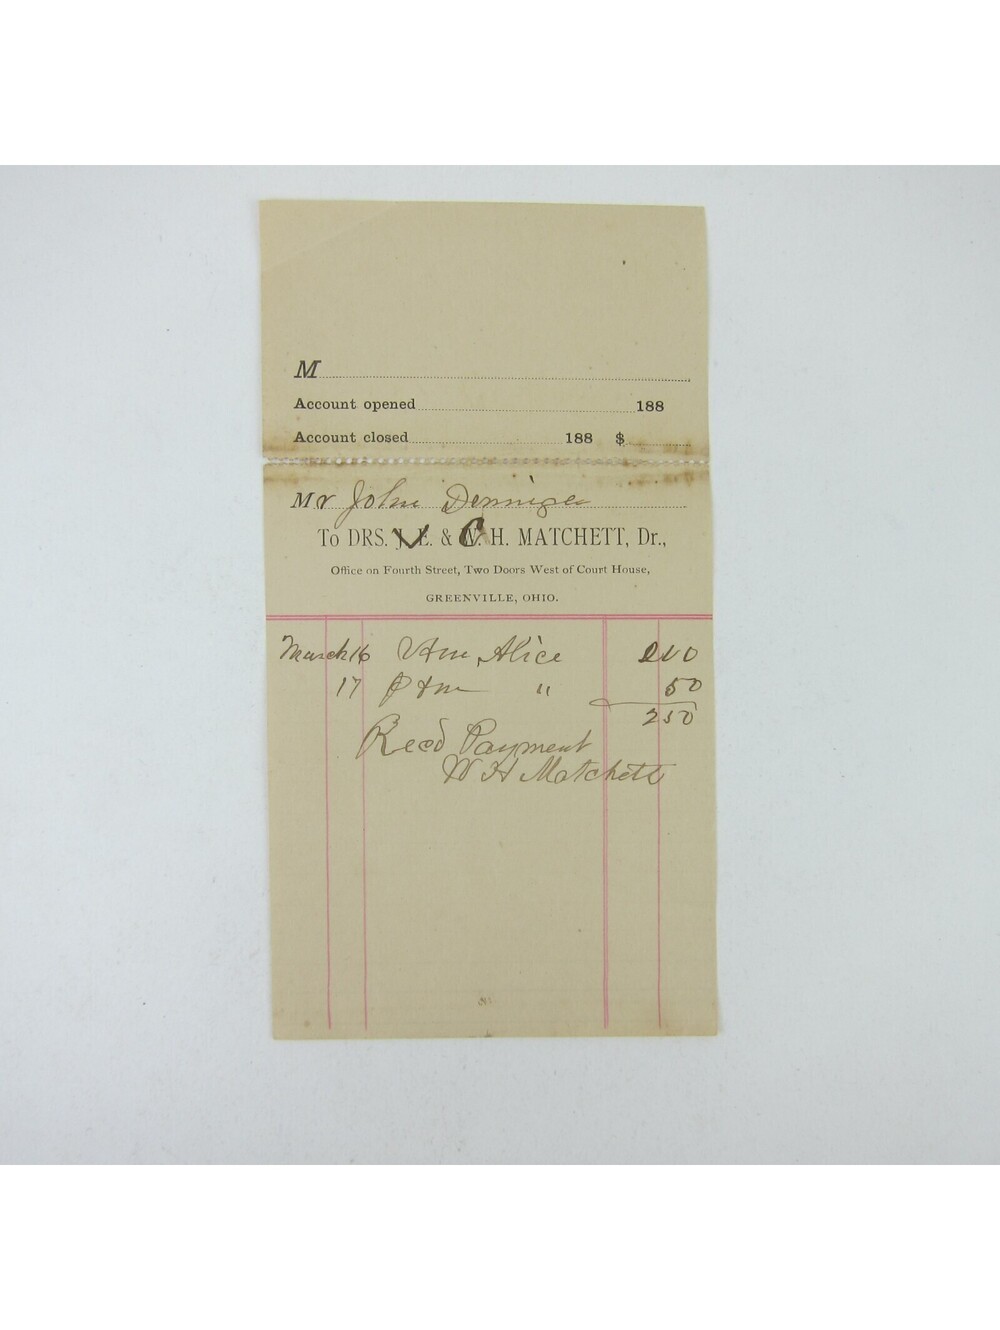 M
Account opened 188
Account closed 188 $
Mr John Denniger
To DRS. J. E. & C. H. MATCHETT, Dr.,
Office on Fourth Street, Two Doors West of Court House,
GREENVILLE, OHIO.
March 16 Alice 200
17 " 50
250
Recd Payment
W H Matchett